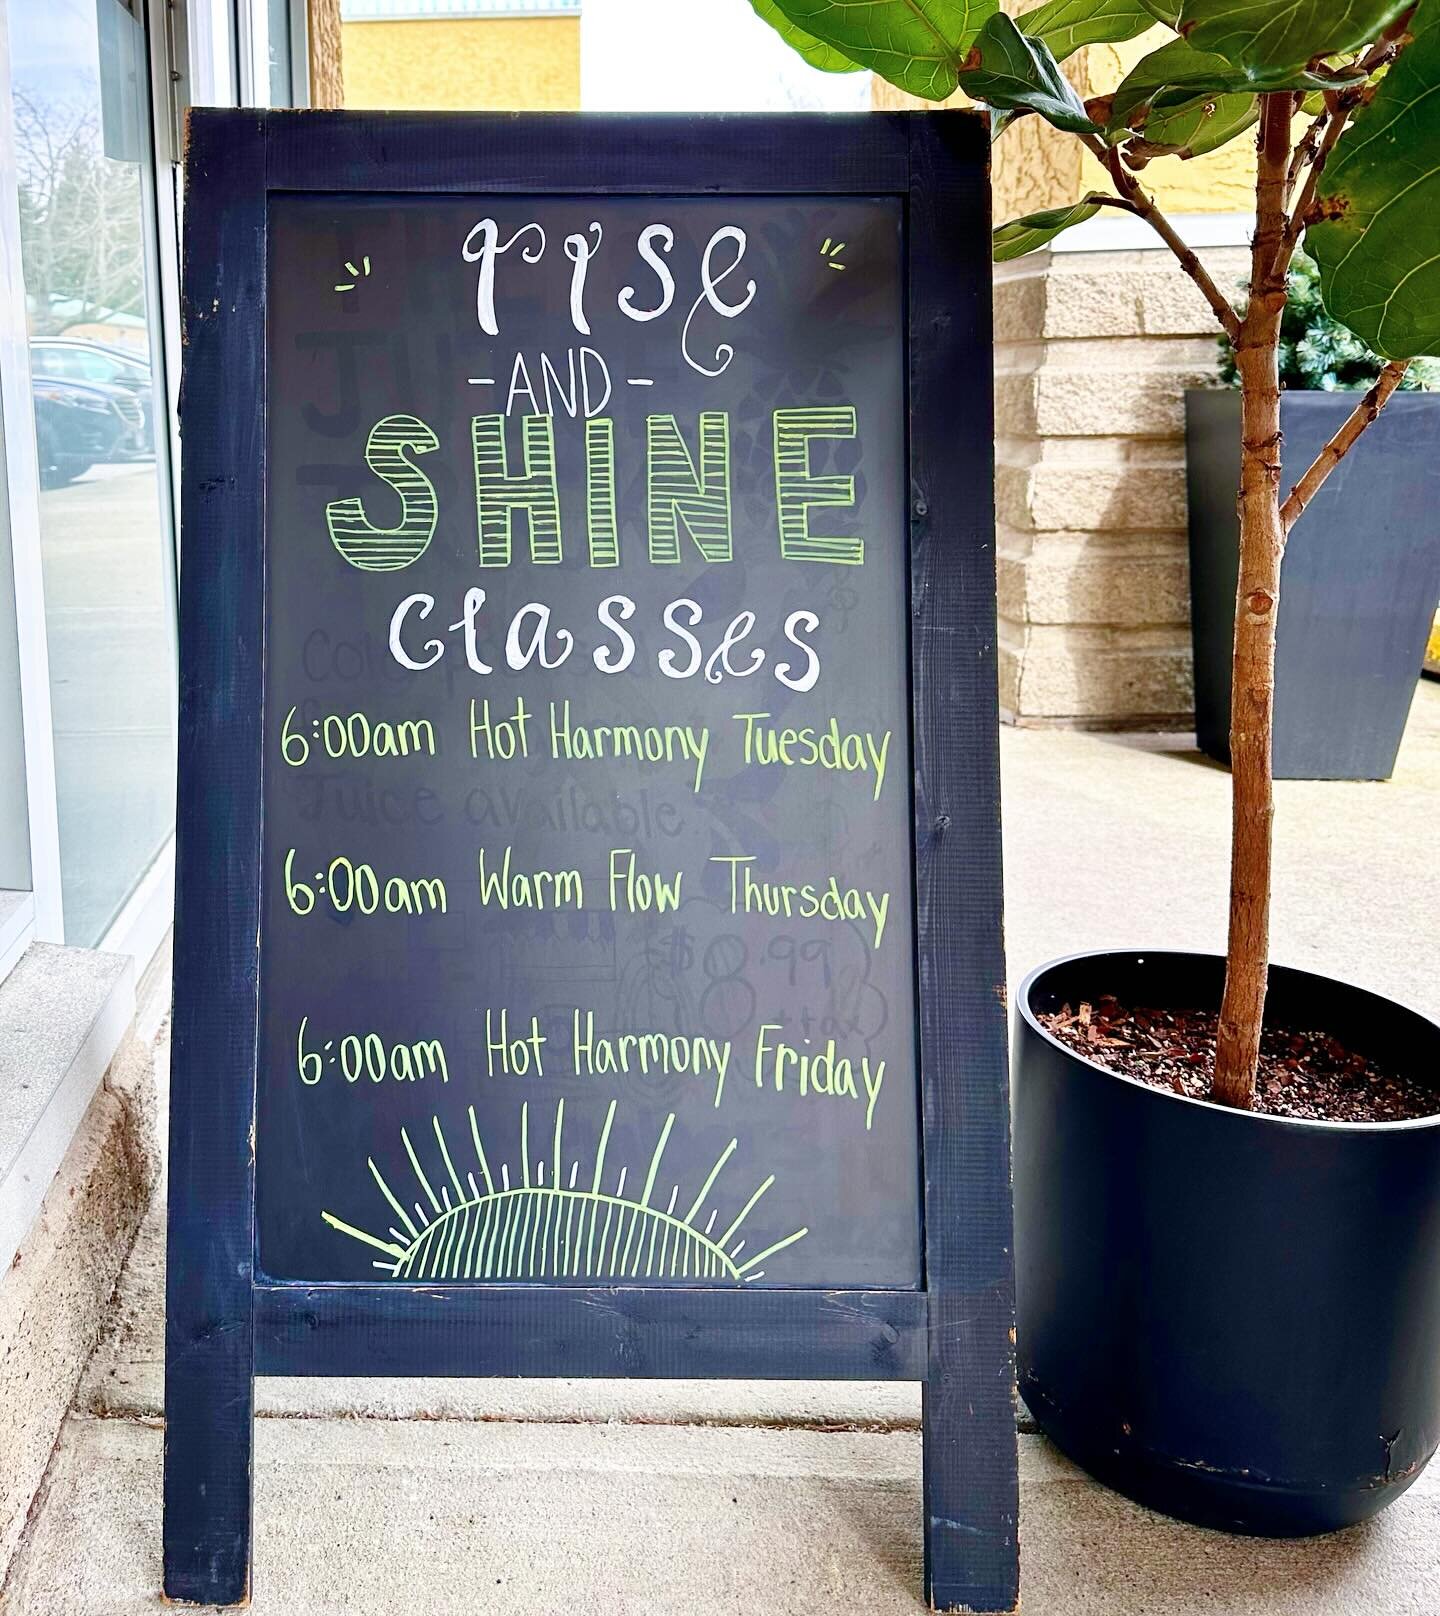 rise
-AND-
SHINE
classes
6:00am Hot Harmony Tuesday
Juice available
6:00am Warm Flow Thursday
$8.99
+tax
6:00am Hot Harmony Friday